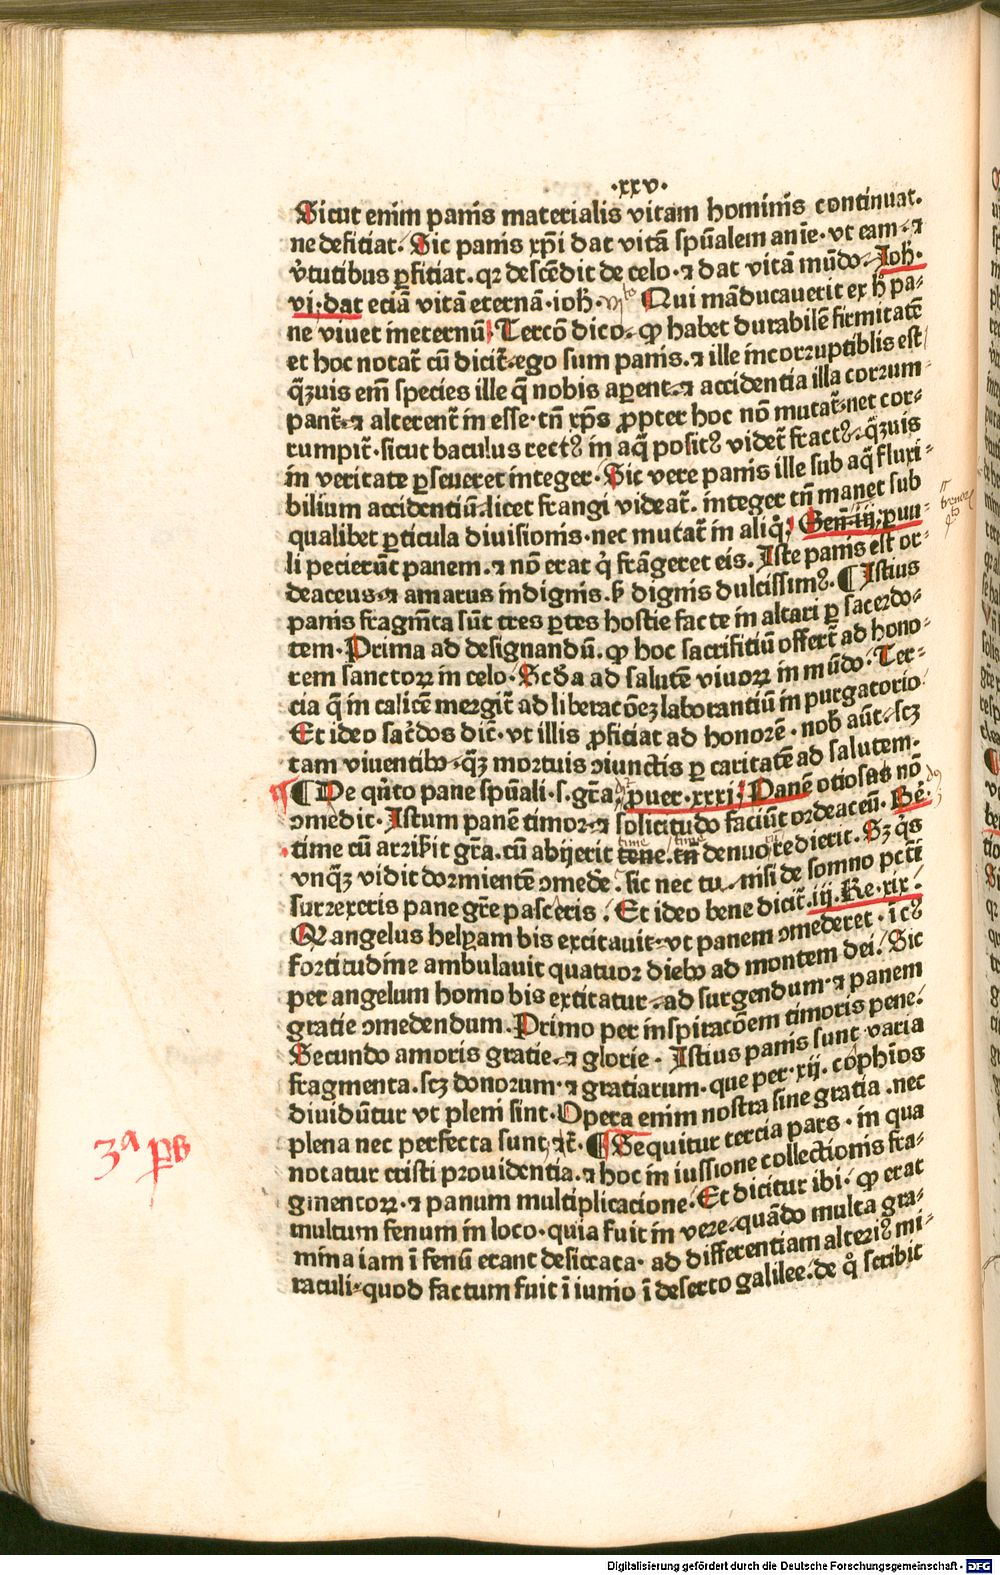 ·xxv·
Sicut enim panis materialis vitam hominis continuat.
ne defitiat. Sic panis xp̄i dat vitā sp̄ualem anīe· vt eam· ⁊
v̄tutibus ꝑfitiat. qꝛ descēdit de celo· ⁊ dat vitā mūdo. Joh̄·
vi· dat eciā vitā eternā· ioh̄· vjto Qui māducauerit ex h̄ pa⸗
ne viuet ineternū. Tercō dico. ꝙ habet durabilē firmitatē
et hoc notat̄ cū dicit̄. ego sum panis. ⁊ ille incorruptiblis est
q̄ꝫuis em̄ species ille q̄ nobis apent. ⁊ accidentia illa corrum⸗
pant̄. ⁊ alterent̄ in esse· tn̄ xp̄s ꝓpter hoc nō mutat̄. nec cor⸗
rumpit̄· sicut baculus rectꝰ in aq̄ positꝰ videt̄ fractꝰ. q̄ꝫuis
in veritate ꝑseueret integer. Sic vere panis ille sub aq̄ fluxi⸗
bilium accidentiū. licet frangi videat̄. integer tn̄ manet sub
qualibet ꝑticula diuisionis· nec mutat̄ in aliq̊. Gen̄. iij. puu⸗
li pecierūt panem. ⁊ nō erat q̇ frāgeret eis. Iste panis est or⸗
deaceus. ⁊ amarus indignis. ꝟ dignis dulcissimꝰ. ¶ Istius
panis fragm̄ta sūt tres ꝑtes hostie facte in altari ꝑ sacerdo⸗
tem. Prima ad designandū. ꝙ hoc sacrifitiū offert̄ ad hono⸗
rem sanctoꝝ in celo. Scd̄a ad salutē viuoꝝ in mūdo. Ter⸗
cia q̄ in calicē mergit̄ ad liberacōeꝫ laborantiū in purgatorio
Et ideo sac̄dos dic̄. vt illis ꝓfitiat ad honorē. nob̄ aūt. scꝫ
tam viuentibꝰ. q̄ꝫ mortuis ↄiunctis ꝑ caritatē ad salutem.
¶ De qn̄to pane sp̄uali. s. gr̄a. puer. xxxi. Panē otiosas nō
ↄmedit. Istum panē timor. ⁊ solicitudo faciūt ordeaceū. Be.
time cū arriꝭit gr̄a. cū abijerit tene. tn̄ denuo redierit. Sꝫ q̊s
vnq̄ꝫ vidit dormientē ↄmede. sic nec tu. nisi de somno pctī
surrexeris pane gr̄e pasceris. Et ideo bene dicit̄. iij. Re. xix.
Qꝛ angelus helyam bis excitauit. vt panem ↄmederet. īcꝰ
fortitudine ambulauit quatuor diebꝰ ad montem dei. Sic
per angelum homo bis excitatur. ad surgendum. ⁊ panem
gratie ↄmedendum. Primo per inspiracōem timoris pene.
Secundo amoris gratie. ⁊ glorie. Istius panis sunt varia
fragmenta. scꝫ donorum. ⁊ gratiarum. que per. xij. cophīos
diuidūtur vt pleni sint. Opera enim nostra sine gratia. nec
plena nec perfecta sunt, ⁊c̄. ¶ Sequitur tercia pars. in qua
notatur cristi prouidentia. ⁊ hoc in iussione collectionis fra⸗
gmentoꝝ. ⁊ panum multiplicacione. Et dicitur ibi. ꝙ erat
multum fenum in loco. quia fuit in vere. quādo multa gra⸗
mina iam ī fenū erant desiccata. ad differentiam alteriꝰ mi⸗
raculi. quod factum fuit ī iunio ī deserto galilee. de q̊ scribit
3ª ꝑs
Digitalisierung gefördert durch die Deutsche Forschungsgemeinschaft - DFG